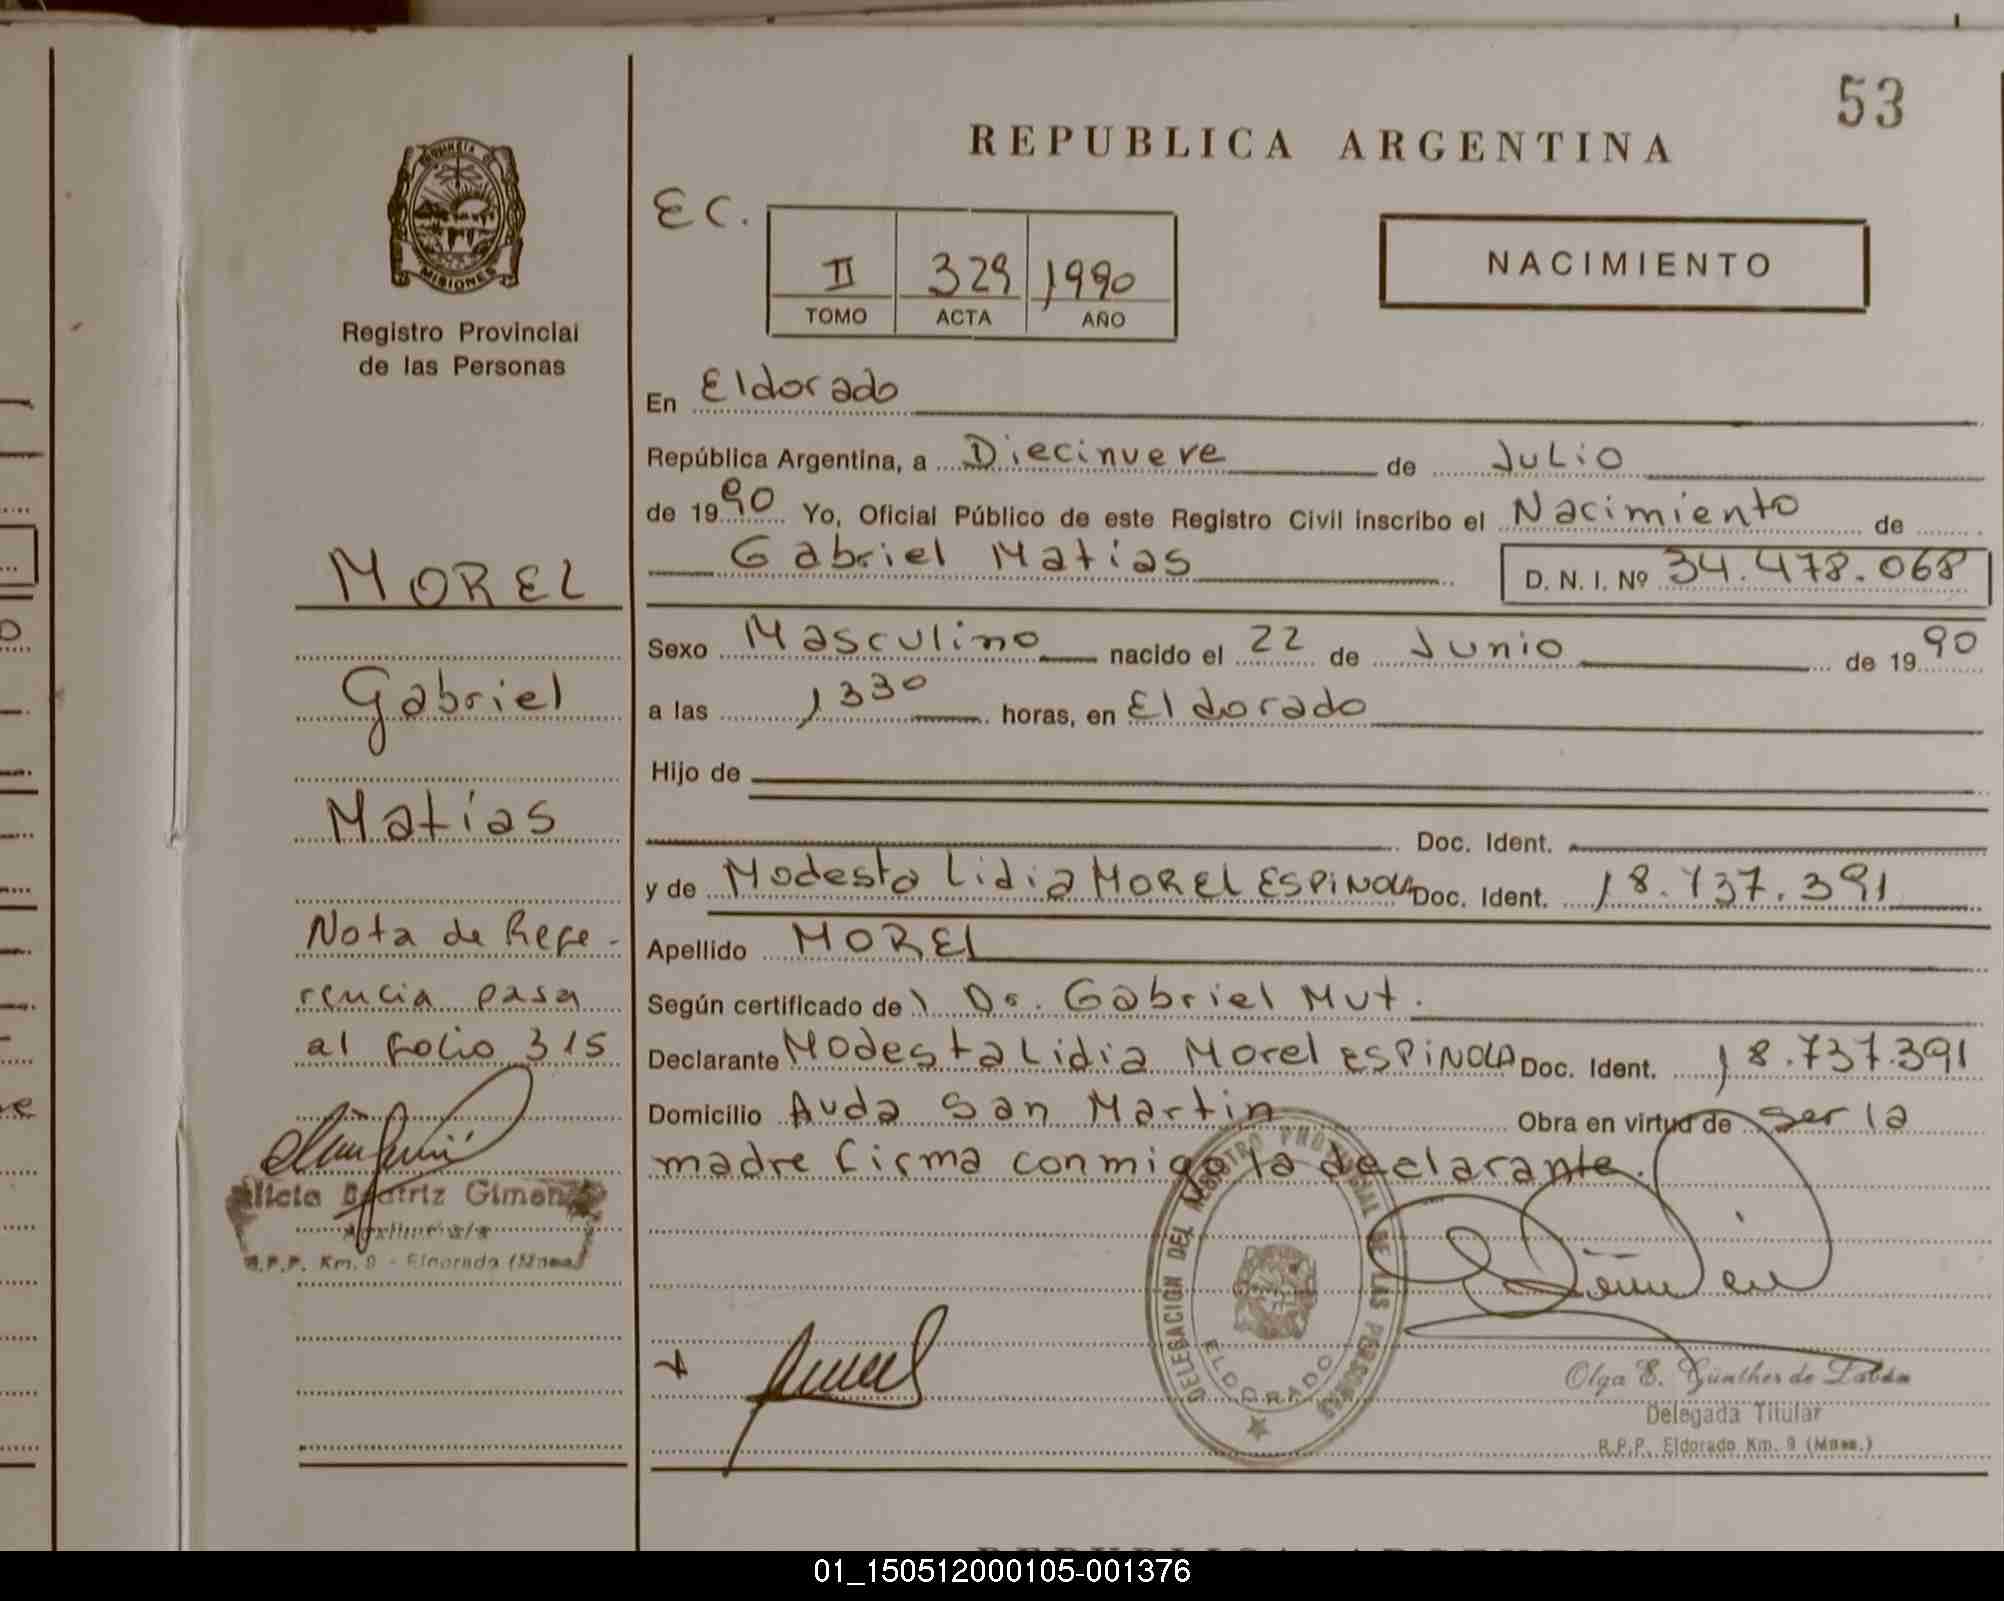 53
REPUBLICA ARGENTINA
PROVINCIA DE
MISIONES
Registro Provincial
de las Personas
EC.
II 329 1990
TOMO ACTA AÑO
NACIMIENTO
En Eldorado
República Argentina, a Diecinueve de Julio
de 1990 Yo, Oficial Público de este Registro Civil inscribo el Nacimiento de
Gabriel Matias D. N. I. Nº 34.478.068
Sexo Masculino nacido el 22 de Junio de 1990
a las 1330 horas, en Eldorado
Hijo de
Doc. Ident.
y de Modesta Lidia MOREL ESPINOLA Doc. Ident. 18.737.391
Apellido MOREL
Según certificado de Dr. Gabriel Mut.
Declarante Modesta Lidia Morel ESPINOLA Doc. Ident. 18.737.391
Domicilio Avda San Martin Obra en virtud de ser la
madre firma conmigo la declarante.
MOREL
Gabriel
Matías
Nota de Refe-
rencia pasa
al folio 315
Alicia Beatriz Gimenez
Auxiliar
R.P.P. Km. 9 - Eldorado (Mnes)
DELEGACION DEL REGISTRO PROVINCIAL DE LAS PERSONAS
ELDORADO
Olga E. Günther de
Delegada Titular
R.P.P. Eldorado Km. 9 (Mnes.)
REPUBLICA ARGENTINA
01_150512000105-001376